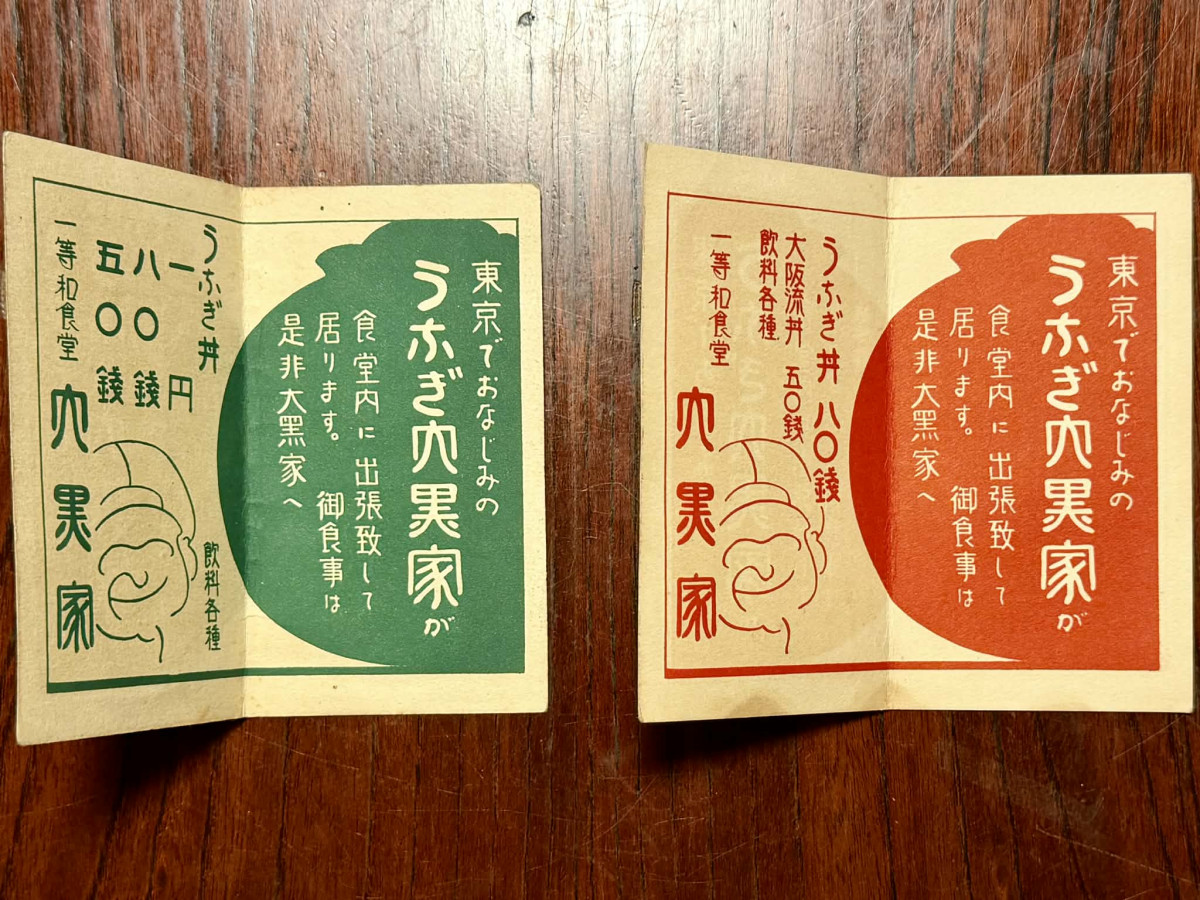 東京でおなじみの
うなぎ大黒家が
食堂内に出張致して
居ります。 御食事は
是非大黒家へ
うなぎ丼
一円
八〇錢
五〇錢
飲料各種
一等和食堂
大黒家
東京でおなじみの
うなぎ大黒家が
食堂内に出張致して
居ります。 御食事は
是非大黒家へ
うなぎ丼 八〇錢
大阪流丼 五〇錢
飲料各種
一等和食堂
大黒家